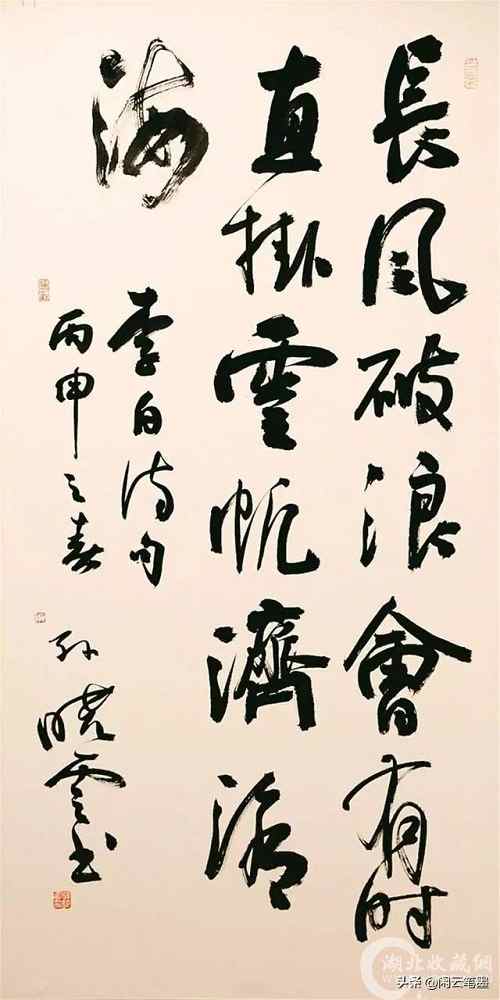 長風破浪會有时
直掛雲帆濟滄
海
李白诗句
丙申之春
孙晓雲书
湖北收藏网
头条 @闲云笔墨